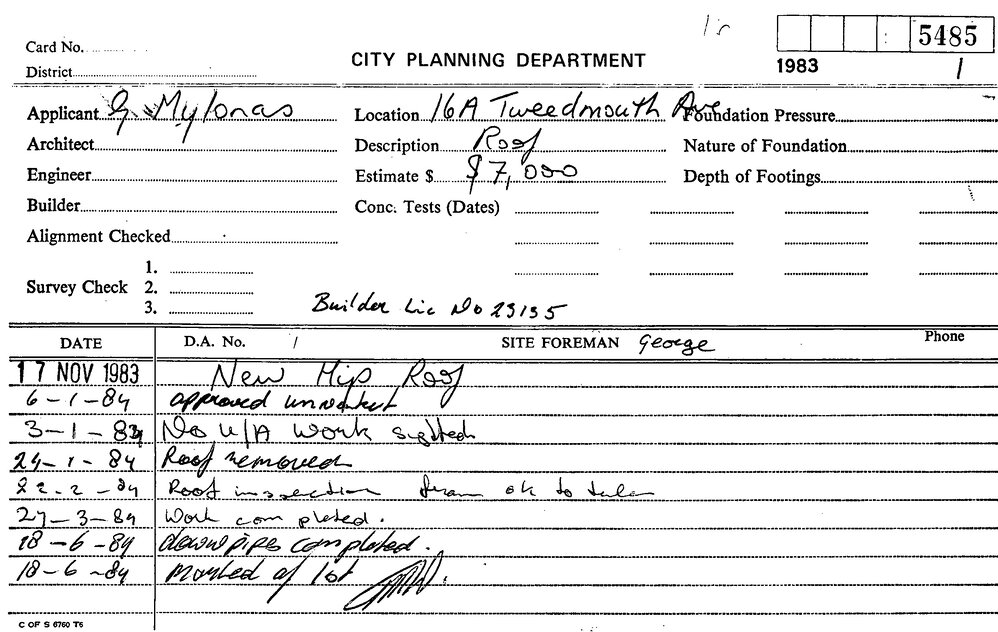 5485
Card No.
CITY PLANNING DEPARTMENT
1983 /
District
Applicant G. Mylonas Location 16A Tweedmouth Ave Foundation Pressure
Architect Description Roof Nature of Foundation
Engineer Estimate $ $7,000 Depth of Footings
Builder Conc. Tests (Dates)
Alignment Checked
1.
Survey Check 2.
3. Builder Lic No 23135
DATE D.A. No. / SITE FOREMAN George Phone
17 NOV 1983 New Hip Roof
6-1-84 approved
3-1-84 No U/A work sighted
24-1-84 Roof removed
22-2-84 Roof inspection fram ok to
27-3-84 Work completed.
18-6-84 downpipes completed.
18-6-84 marked of list
C OF S 6760 T6